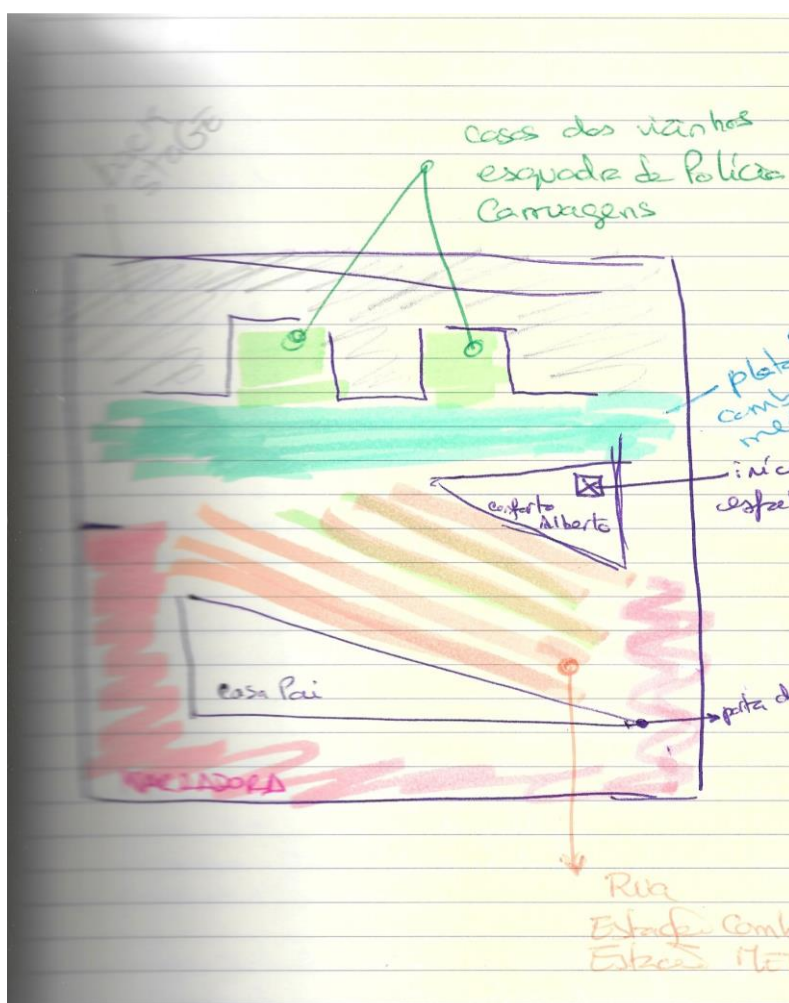 back
stage
casas dos vizinhos
esquadra de Polícia
Carruagens
plata
comb
me
iníc
conforto
Alberto
espe
casa Pai
porta d
NARRADORA
Rua
Estação Comb
Estação ME